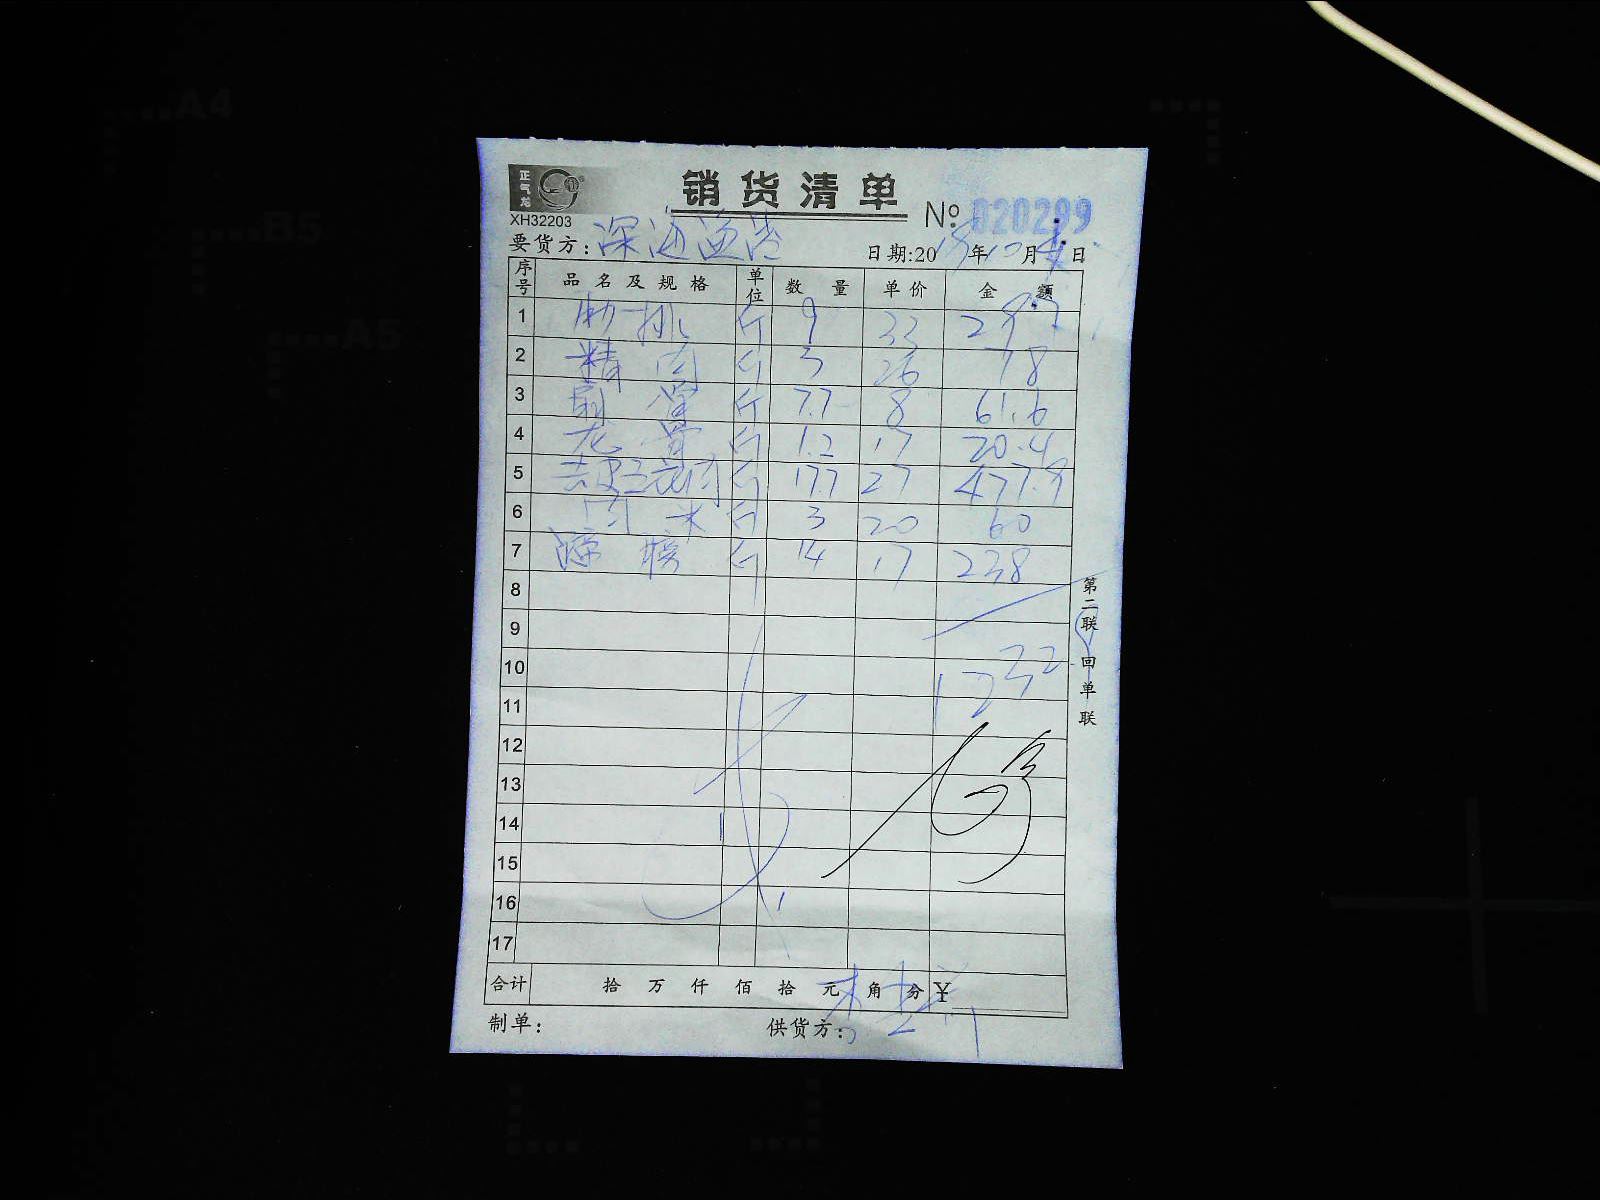 A4
B5
A5
正气龙
销货清单
XH32203
No 020299
要货方：深海渔港
日期:20 年10月 日
序号 品名及规格 单位 数量 单价 金额
1 肋排 斤 9 33 297
2 精肉 斤 3 26 78
3 扇骨 斤 7.7 8 61.6
4 龙骨 斤 1.2 17 20.4
5 去皮五花肉 斤 17.7 27 477.9
6 肉米 斤 3 20 60
7 斤 14 17 238
8
9
10 1232
11
12
13
14
15
16
17
合计 拾 万 仟 佰 拾 元 角 分 ¥
制单： 供货方：
第二联 回单联